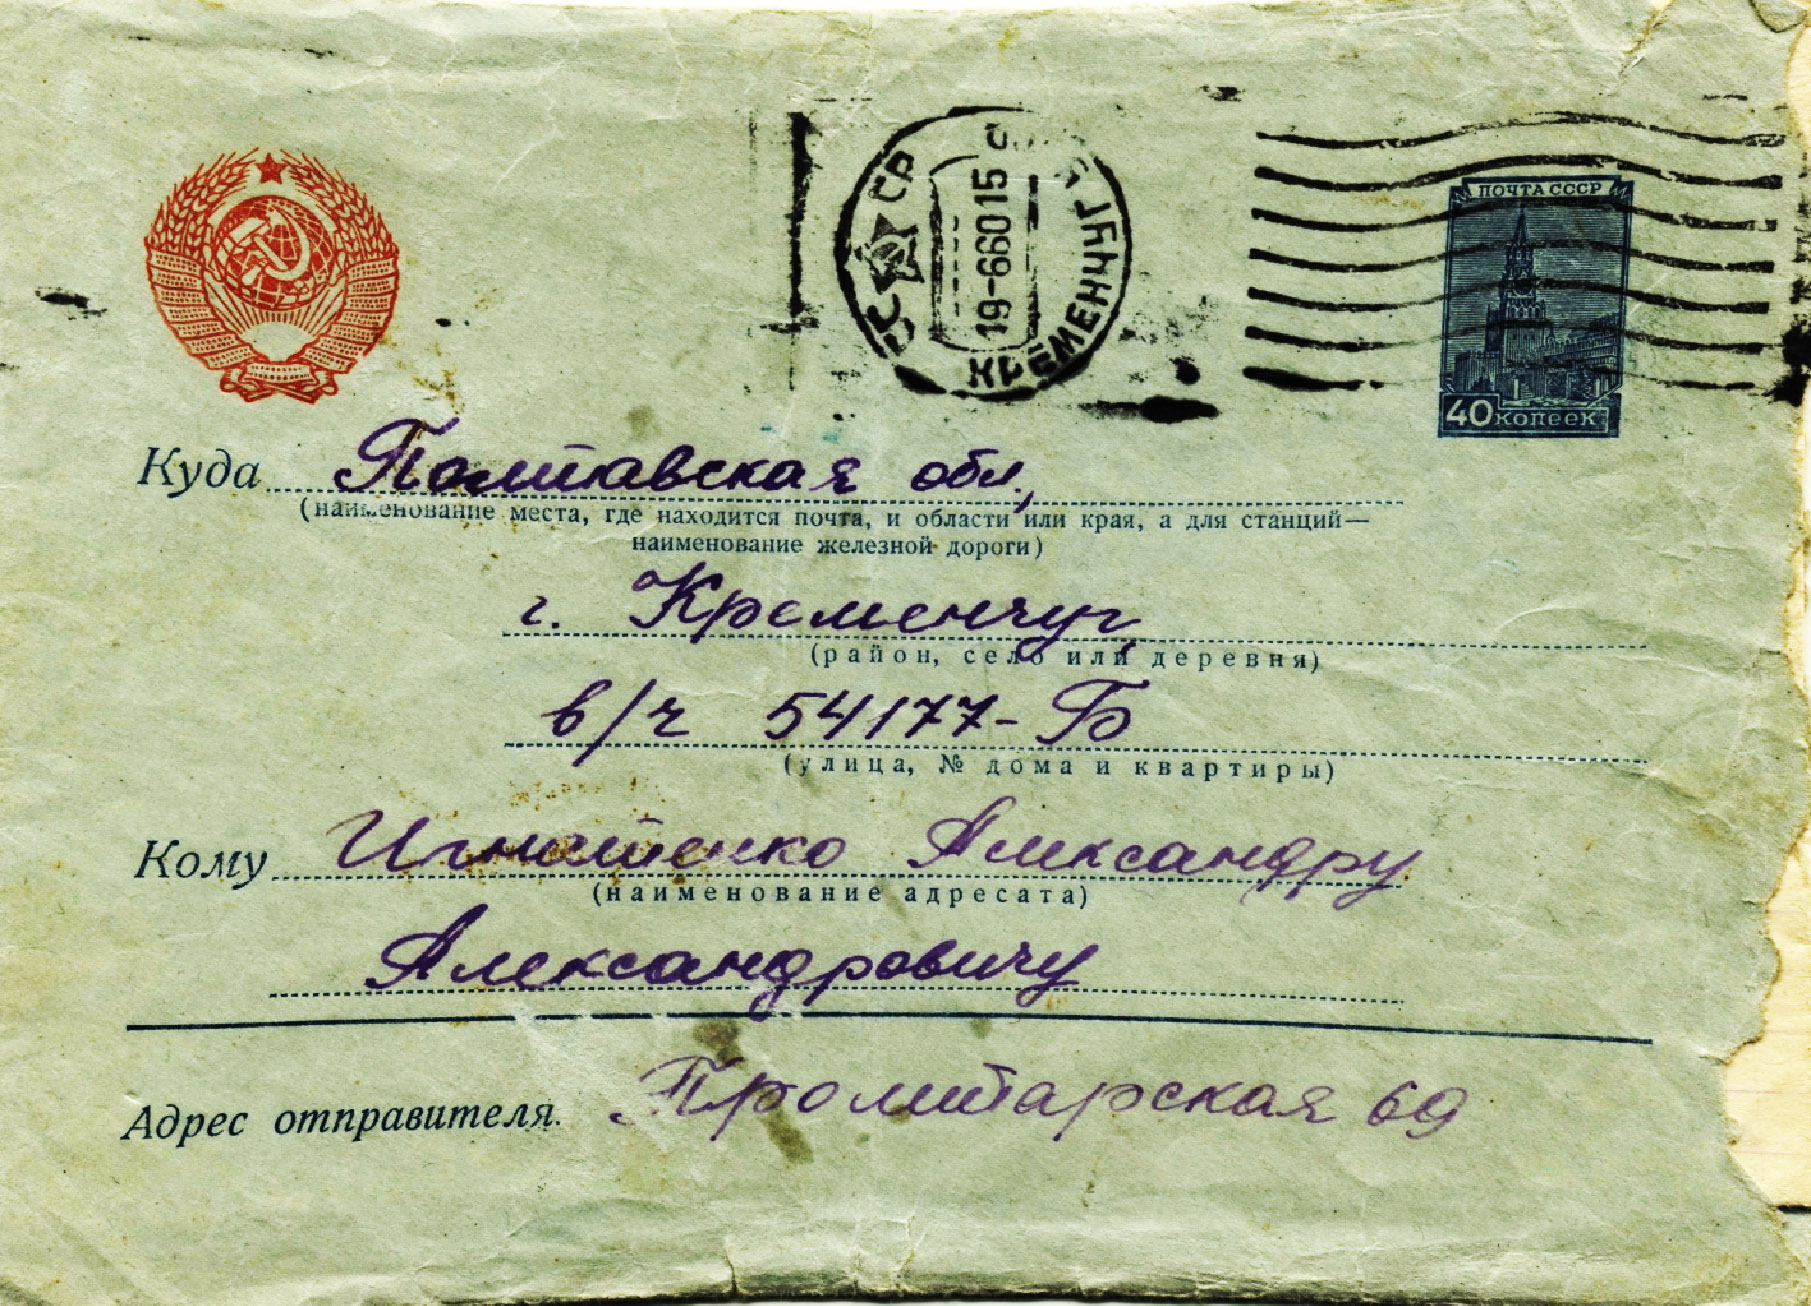 ПОЧТА СССР
40 копеек
СССР
19-66015
КРЕМЕНЧУГ
Куда Полтавская обл.,
(наименование места, где находится почта, и области или края, а для станций—
наименование железной дороги)
г. Кременчуг,
(район, село или деревня)
в/ч 54177-Б
(улица, № дома и квартиры)
Кому Игнатенко Александру
(наименование адресата)
Александровичу
Адрес отправителя. Пролитарская 69